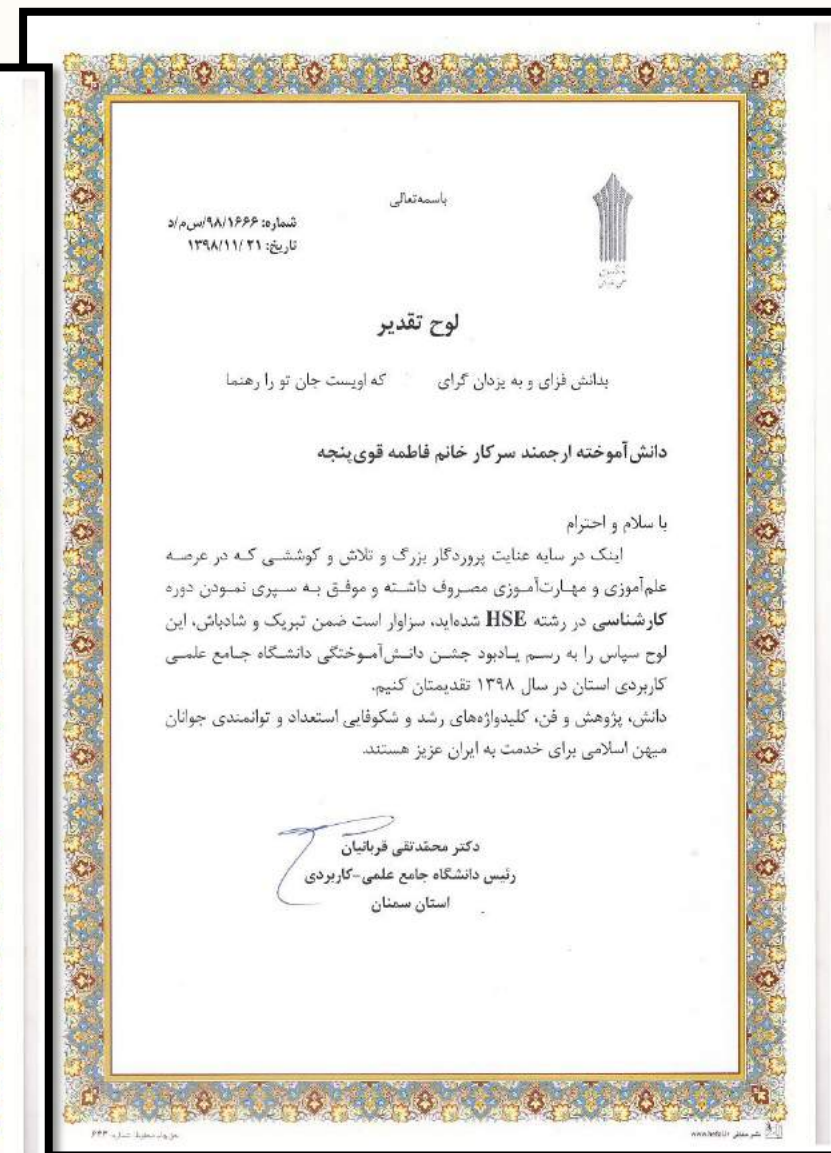 باسمه‌تعالی
شماره: ۹۸/۱۶۶۶/س‌م/د
تاریخ: ۱۳۹۸/۱۱/۲۱
لوح تقدیر
بدانش فزای و به یزدان گرای که اویست جان تو را رهنما
دانش‌آموخته ارجمند سرکار خانم فاطمه قوی‌پنجه
با سلام و احترام
اینک در سایه عنایت پروردگار بزرگ و تلاش و کوششی که در عرصه
علم‌آموزی و مهارت‌آموزی مصروف داشته و موفق به سپری نمودن دوره
کارشناسی در رشته HSE شده‌اید، سزاوار است ضمن تبریک و شادباش، این
لوح سپاس را به رسم یادبود جشن دانش‌آموختگی دانشگاه جامع علمی
کاربردی استان در سال ۱۳۹۸ تقدیمتان کنیم.
دانش، پژوهش و فن، کلیدواژه‌های رشد و شکوفایی استعداد و توانمندی جوانان
میهن اسلامی برای خدمت به ایران عزیز هستند.
دکتر محمّدتقی قربانیان
رئیس دانشگاه جامع علمی-کاربردی
استان سمنان